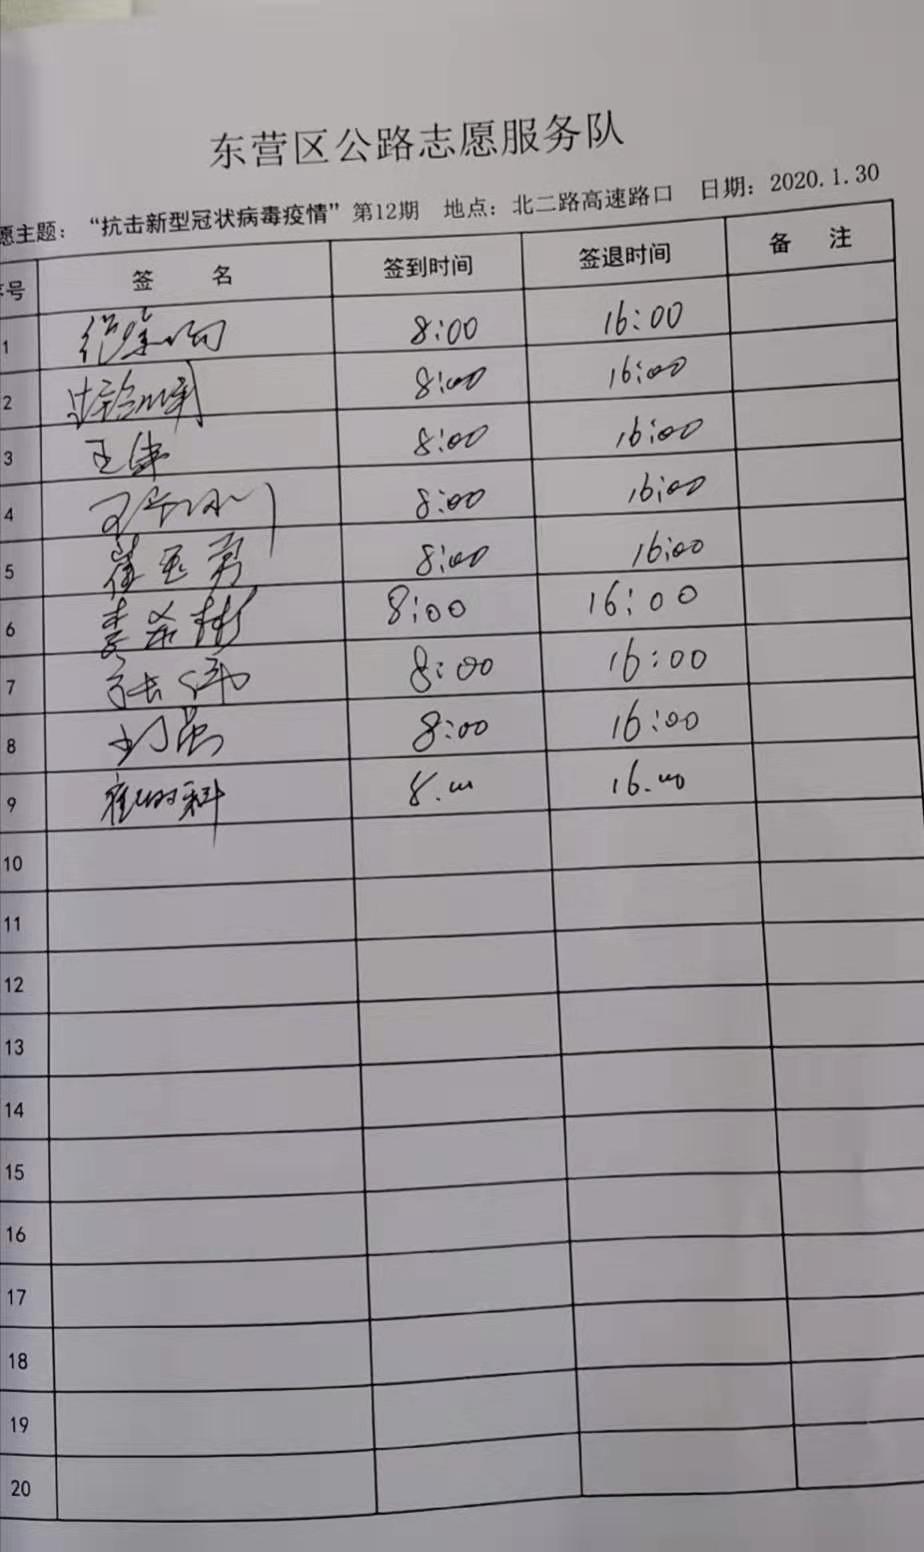 东营区公路志愿服务队
愿主题：“抗击新型冠状病毒疫情”第12期 地点：北二路高速路口 日期：2020.1.30
序号 签 名 签到时间 签退时间 备 注
1 8:00 16:00
2 8:00 16:00
3 王伟 8:00 16:00
4 8:00 16:00
5 崔玉勇 8:00 16:00
6 8:00 16:00
7 张伟 8:00 16:00
8 8:00 16:00
9 8.00 16.00
10
11
12
13
14
15
16
17
18
19
20